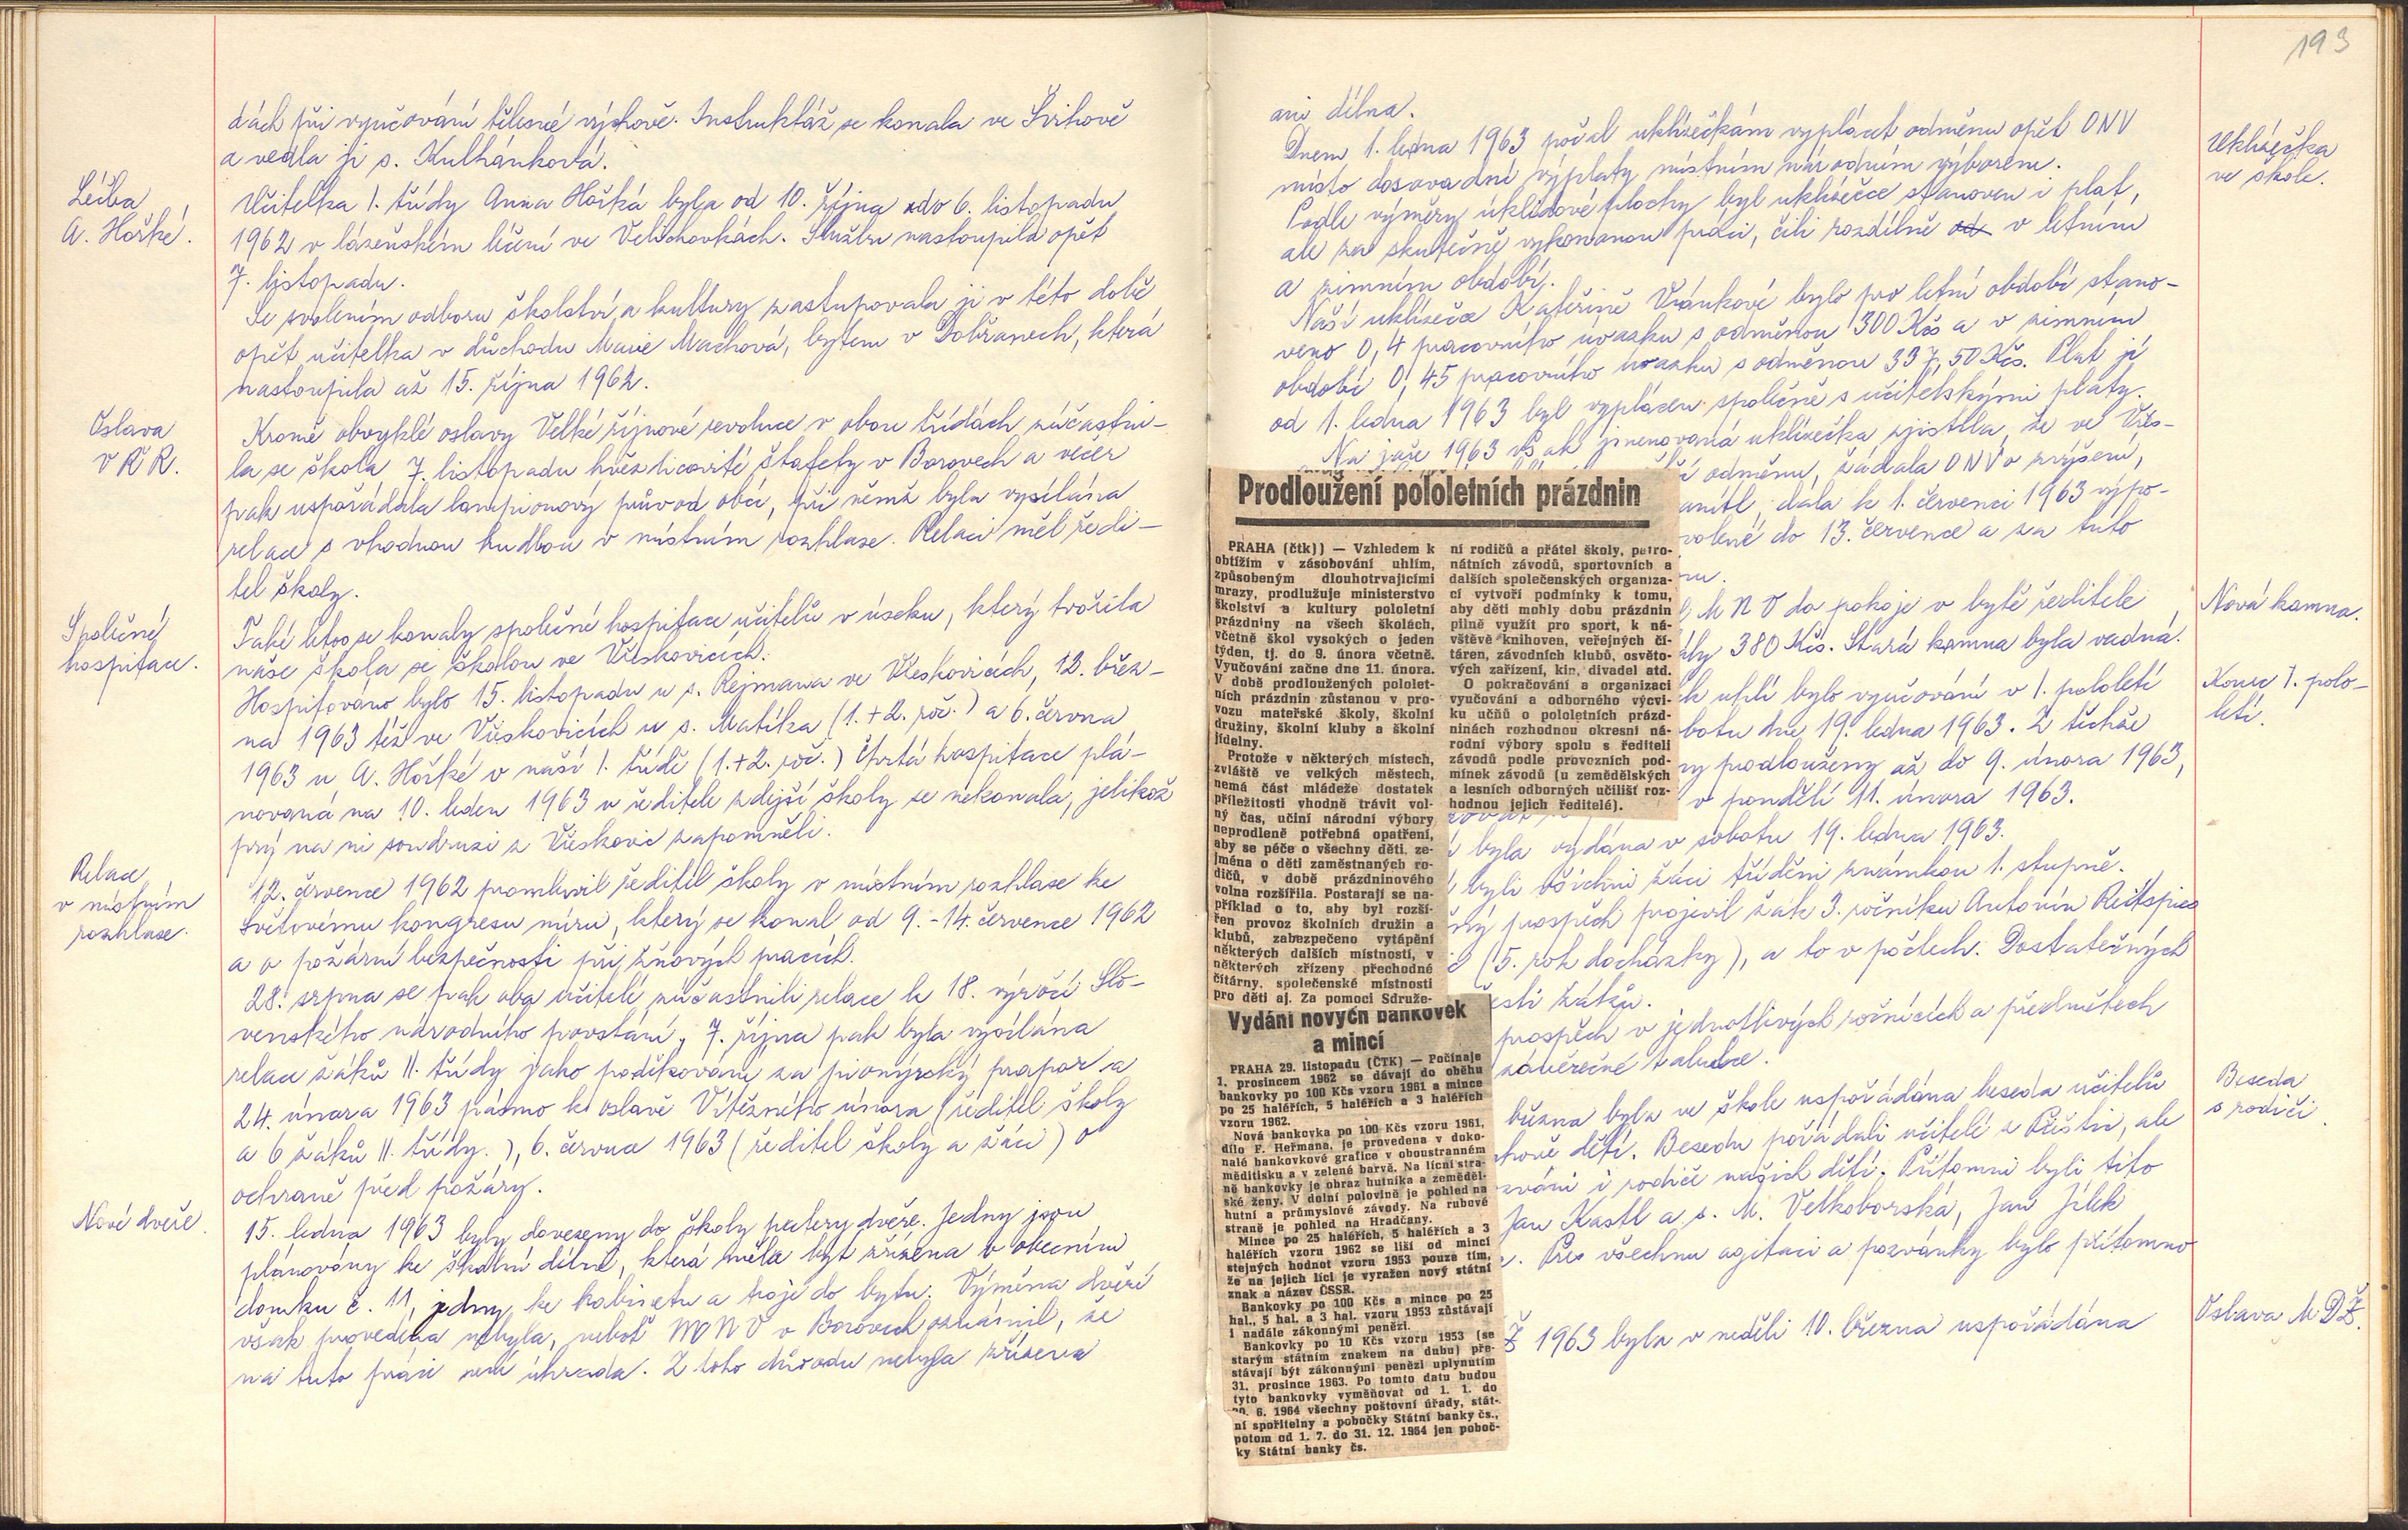 dách při vyučování tělesné výchově. Instruktáž se konala ve Švihově
a vedla ji s. Kulhánková.
Léčba
A. Hořké.
Učitelka I. třídy Anna Hořká byla od 10. října do 6. listopadu
1962 v lázeňském léčení ve Velichovkách. Službu nastoupila opět
7. listopadu.
Se svolením odboru školství a kultury zastupovala ji v této době
opět učitelka v důchodu Marie Machová, bytem v Dobřanech, která
nastoupila až 15. října 1962.
Oslava
VŘR.
Kromě obvyklé oslavy Velké říjnové revoluce v obou třídách zúčastni-
la se škola 7. listopadu hvězdicovité štafety v Borovech a večer
pak uspořádala lampionový průvod obcí, při němž byla vysílána
relace s vhodnou hudbou v místním rozhlase. Relaci měl ředi-
tel školy.
Společné
hospitace.
Také letos se konaly společné hospitace učitelů v úseku, který tvořila
naše škola se školou ve Vřeskovicích.
Hospitováno bylo 15. listopadu u s. Rejmana ve Vřeskovicích, 12. břez-
na 1963 též ve Vřeskovicích u s. Matíka (1.+2. roč.) a 6. června
1963 u A. Hořké v naší I. třídě (1.+2. roč.) Čtvrtá hospitace plá-
novaná na 10. leden 1963 u ředitele zdejší školy se nekonala, jelikož
prý na ni soudruzi z Vřeskovic zapomněli.
Relace
v místním
rozhlase.
12. července 1962 promluvil ředitel školy v místním rozhlase ke
Světovému kongresu míru, který se konal od 9.-14. července 1962
a o požární bezpečnosti při žňových pracích.
28. srpna se pak oba učitelé zúčastnili relace k 18. výročí Slo-
venského národního povstání, 7. října pak byla vysílána
relace žáků II. třídy jako poděkování za pionýrský prapor a
24. února 1963 pásmo k oslavě Vítězného února (ředitel školy
a 6 žáků II. třídy.), 6. června 1963 (ředitel školy a žáci) o
ochraně před požáry.
Nové dveře.
15. ledna 1963 byly dovezeny do školy patery dveře. Jedny jsou
plánovány ke školní dílně, která měla být zřízena v obecním
domku č. 11, jedny ke kabinetu a troje do bytu. Výměna dveří
však provedena nebyla, neboť MNV v Borovech oznámil, že
na tuto práci není úhrada. Z toho důvodu nebyla zřízena
193
ani dílna.
Uklízečka
ve škole.
Dnem 1. ledna 1963 počal uklízečkám vyplácet odměnu opět ONV
místo dosavadní výplaty místním národním výborem.
Podle výměry úklidové plochy byl uklízečce stanoven i plat,
ale za skutečně vykonanou práci, čili rozdílně od v letním
a zimním období.
Naší uklízečce Kateřině Vránkové bylo pro letní období stano-
veno 0,4 pracovního úvazku s odměnou 300 Kčs a v zimním
období 0,45 pracovního úvazku s odměnou 337,50 Kčs. Plat jí
od 1. ledna 1963 byl vyplácen společně s učitelskými platy.
Na jaře 1963 však jmenovaná uklízečka zjistila, že ve Vřes-
odměnu, žádala ONV o zvýšení,
dala k 1. červenci 1963 výpo-
do 13. července a za tuto
Nová kamna.
MNV do pokoje v bytě ředitele
380 Kčs. Stará kamna byla vadná.
Konec I. polo-
letí.
uhlí bylo vyučování v I. pololetí
botu dne 19. ledna 1963. Z těchže
prodlouženy až do 9. února 1963,
v pondělí 11. února 1963.
byla vydána v sobotu 19. ledna 1963.
byli všichni žáci tříděni známkou 1. stupně.
prospěch projevil žák 3. ročníku Antonín
(5. rok docházky), a to v počtech. Dostatečných
žáků.
prospěch v jednotlivých ročnících a předmětech
závěrečné tabulce.
Beseda
s rodiči.
března byla ve škole uspořádána beseda učitelů
dětí. Besedu pořádali učitelé z Příštic, ale
zváni i rodiče našich dětí. Přítomni byli tito
Jan Kastl a s. M. Velkoborská, Jan Jílek
Přes všechnu agitaci a pozvánky bylo přítomno
Oslava MDŽ.
Ž 1963 byla v neděli 10. března uspořádána
Prodloužení pololetních prázdnin
PRAHA (čtk)) — Vzhledem k
obtížím v zásobování uhlím,
způsobeným dlouhotrvajícími
mrazy, prodlužuje ministerstvo
školství a kultury pololetní
prázdniny na všech školách,
včetně škol vysokých o jeden
týden, tj. do 9. února včetně.
Vyučování začne dne 11. února.
V době prodloužených pololet-
ních prázdnin zůstanou v pro-
vozu mateřské školy, školní
družiny, školní kluby a školní
jídelny.
Protože v některých místech,
zvláště ve velkých městech,
nemá část mládeže dostatek
příležitosti vhodně trávit vol-
ný čas, učiní národní výbory
neprodleně potřebná opatření,
aby se péče o všechny děti, ze-
jména o děti zaměstnaných ro-
dičů, v době prázdninového
volna rozšířila. Postarají se na-
příklad o to, aby byl rozší-
řen provoz školních družin a
klubů, zabezpečeno vytápění
některých dalších místností, v
některých zřízeny přechodné
čítárny, společenské místnosti
pro děti aj. Za pomoci Sdruže-
ní rodičů a přátel školy, patro-
nátních závodů, sportovních a
dalších společenských organiza-
cí vytvoří podmínky k tomu,
aby děti mohly dobu prázdnin
pilně využít pro sport, k ná-
vštěvě knihoven, veřejných čí-
táren, závodních klubů, osvěto-
vých zařízení, kin, divadel atd.
O pokračování a organizaci
vyučování a odborného výcvi-
ku učňů o pololetních prázd-
ninách rozhodnou okresní ná-
rodní výbory spolu s řediteli
závodů podle provozních pod-
mínek závodů (u zemědělských
a lesních odborných učilišť roz-
hodnou jejich ředitelé).
Vydání nových bankovek
a mincí
PRAHA 29. listopadu (ČTK) — Počínaje
1. prosincem 1962 se dávají do oběhu
bankovky po 100 Kčs vzoru 1961 a mince
po 25 haléřích, 5 haléřích a 3 haléřích
vzoru 1962.
Nová bankovka po 100 Kčs vzoru 1961,
dílo F. Heřmana, je provedena v doko-
nalé bankovkové grafice v oboustranném
měditisku a v zelené barvě. Na lícní stra-
ně bankovky je obraz hutníka a zeměděl-
ské ženy. V dolní polovině je pohled na
hutní a průmyslové závody. Na rubové
straně je pohled na Hradčany.
Mince po 25 haléřích, 5 haléřích a 3
haléřích vzoru 1962 se liší od mincí
stejných hodnot vzoru 1953 pouze tím,
že na jejich líci je vyražen nový státní
znak a název ČSSR.
Bankovky po 100 Kčs a mince po 25
hal., 5 hal. a 3 hal. vzoru 1953 zůstávají
i nadále zákonnými penězi.
Bankovky po 10 Kčs vzoru 1953 (se
starým státním znakem na dubu) pře-
stávají být zákonnými penězi uplynutím
31. prosince 1963. Po tomto datu budou
tyto bankovky vyměňovat od 1. 1. do
30. 6. 1964 všechny poštovní úřady, stát-
ní spořitelny a pobočky Státní banky čs.,
potom od 1. 7. do 31. 12. 1964 jen poboč-
ky Státní banky čs.